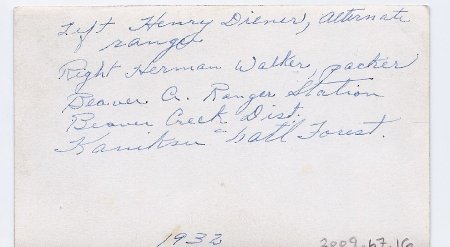 Left Henry Diener, alternate
ranger
Right Herman Walker, packer
Beaver Cr. Ranger Station
Beaver Creek Dist.
Kaniksu Natl Forest.
1932
2009.67.16